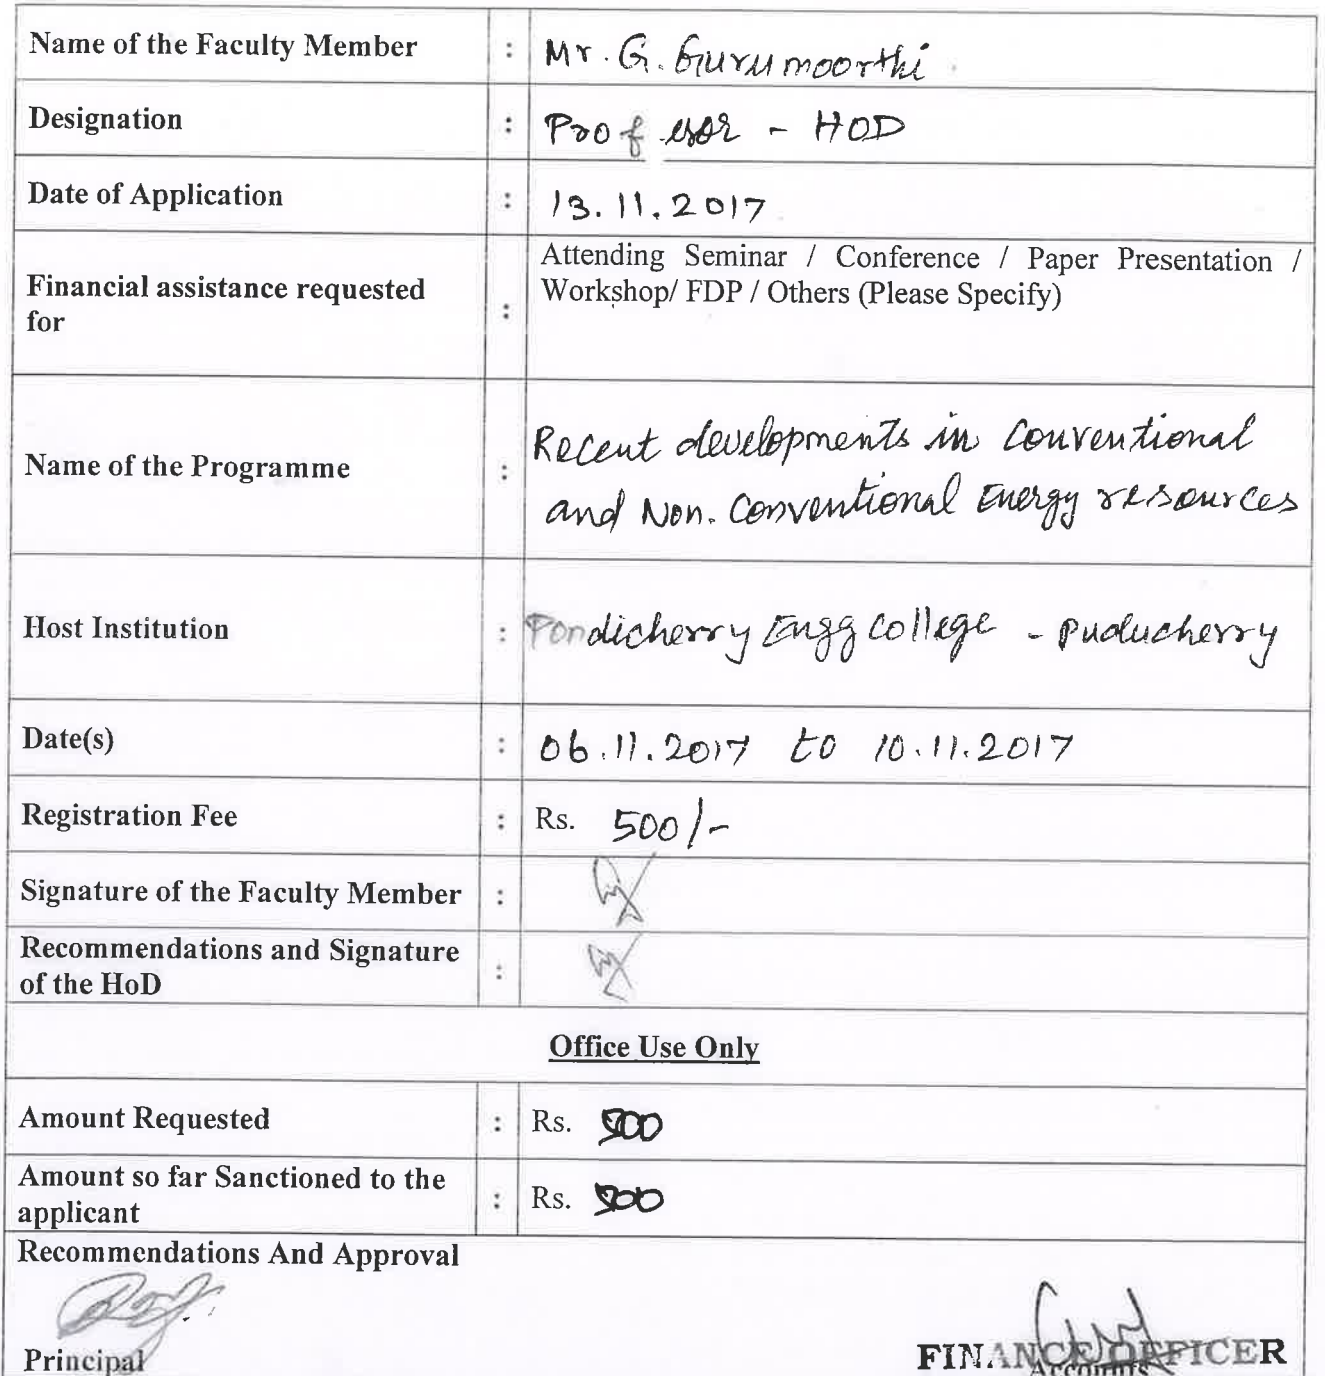 Name of the Faculty Member : Mr. G. Gurumoorthi
Designation : Profesor - HOD
Date of Application : 13.11.2017
Financial assistance requested for : Attending Seminar / Conference / Paper Presentation /
Workshop/ FDP / Others (Please Specify)
Name of the Programme : Recent developments in Conventional
and Non. Conventional Energy resources
Host Institution : Pondicherry Engg College - Puducherry
Date(s) : 06.11.2017 to 10.11.2017
Registration Fee : Rs. 500/-
Signature of the Faculty Member :
Recommendations and Signature
of the HoD :
Office Use Only
Amount Requested : Rs. 500
Amount so far Sanctioned to the
applicant : Rs. 500
Recommendations And Approval
Principal
FINANCE OFFICER
Accounts